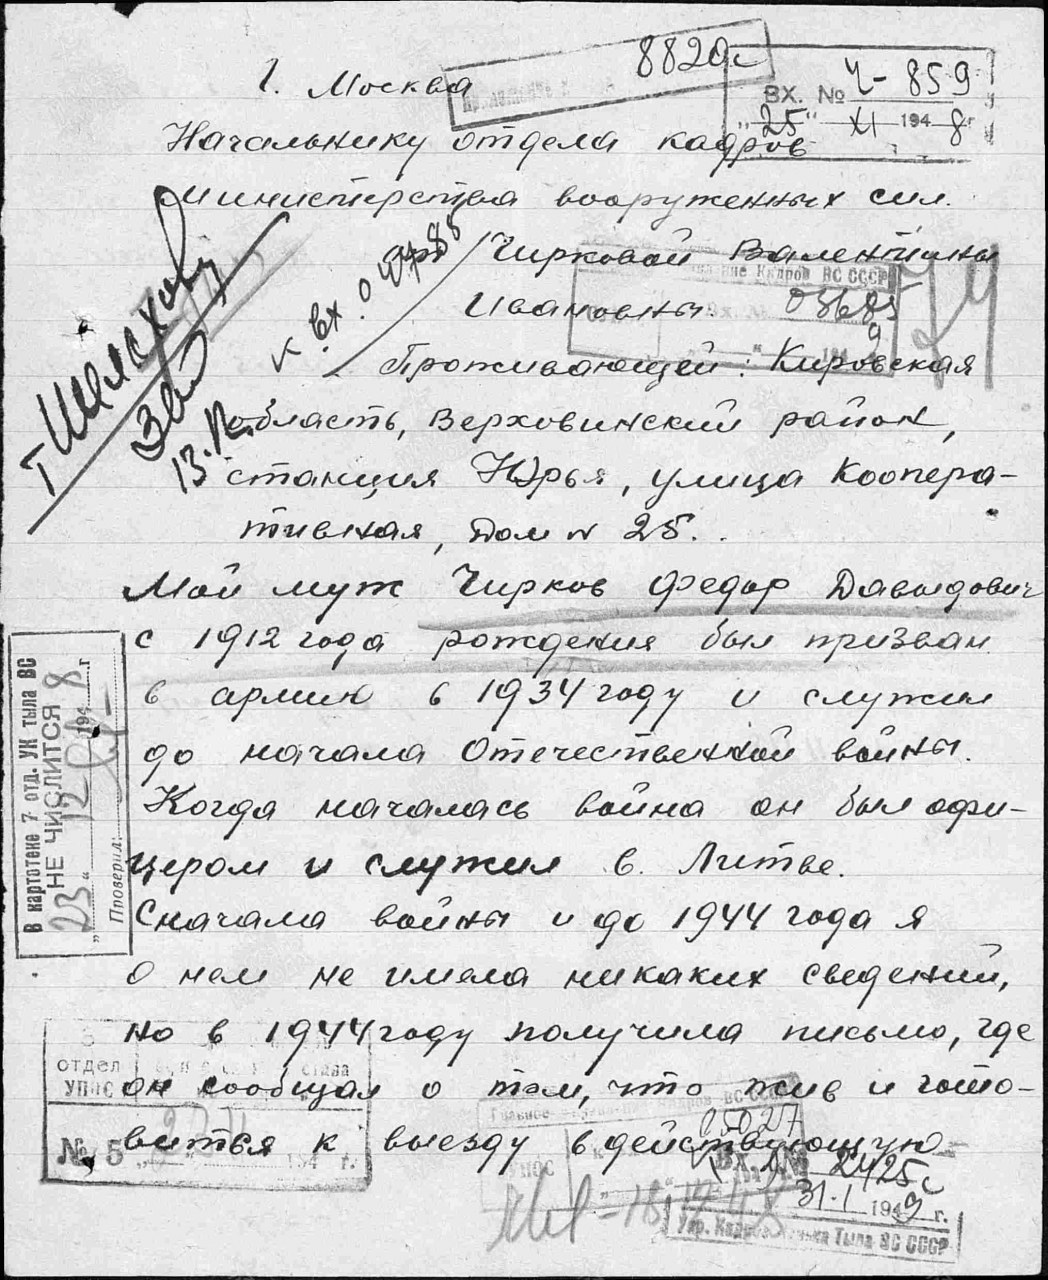 8820с
ВХ. № Ч-859
"25" XI 1948 г.
г. Москва
Начальнику отдела кадров
министерства вооруженных сил.
от Чирковой Валентины
Ивановны.
Кадров ВС СССР
к вх. 04788
Проживающей: Кировская
область, Верховинский район,
станция Юрья, улица Коопера-
тивная, дом № 25.
Мой муж Чирков Федор Давыдович
с 1912 года рождения был призван
в армию в 1934 году и служил
до начала Отечественной войны.
Когда началась война он был офи-
цером и служил в Литве.
Сначала войны и до 1944 года я
о нем не имела никаких сведений,
но в 1944 году получила письмо, где
он сообщал о том, что жив и гото-
вится к выезду в действующую
В картотеке 7 отд. УК тыла ВС
НЕ ЧИСЛИТСЯ
"23" 12 1948 г.
Проверил:
отдел
УПНС
№ 5
194 г.
ВС СССР
05027
УПОС
Вх. № 2425с
31.I 1949 г.
Упр. Кадров Тыла ВС СССР